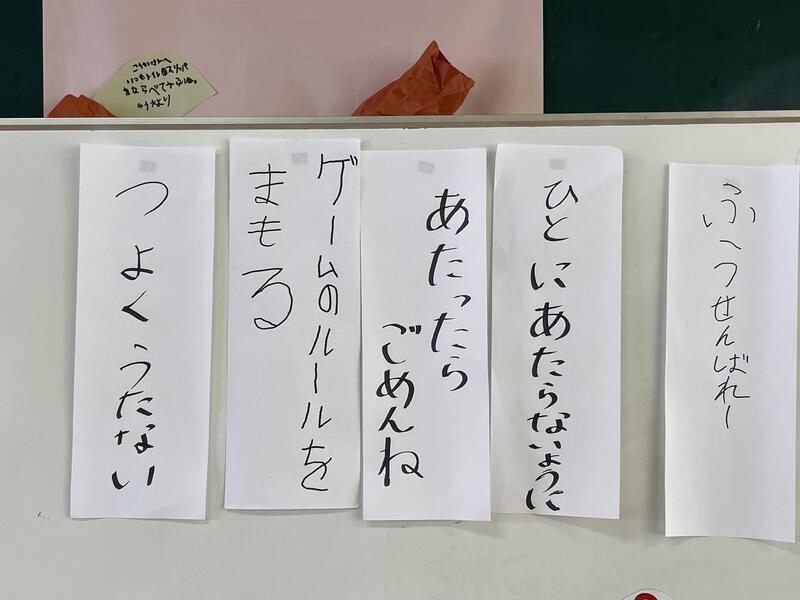 いつもトイレ
ふうせんばれー
ひとにあたらないように
あたったら
ごめんね
ゲームのルールを
まもる
つよくうたない